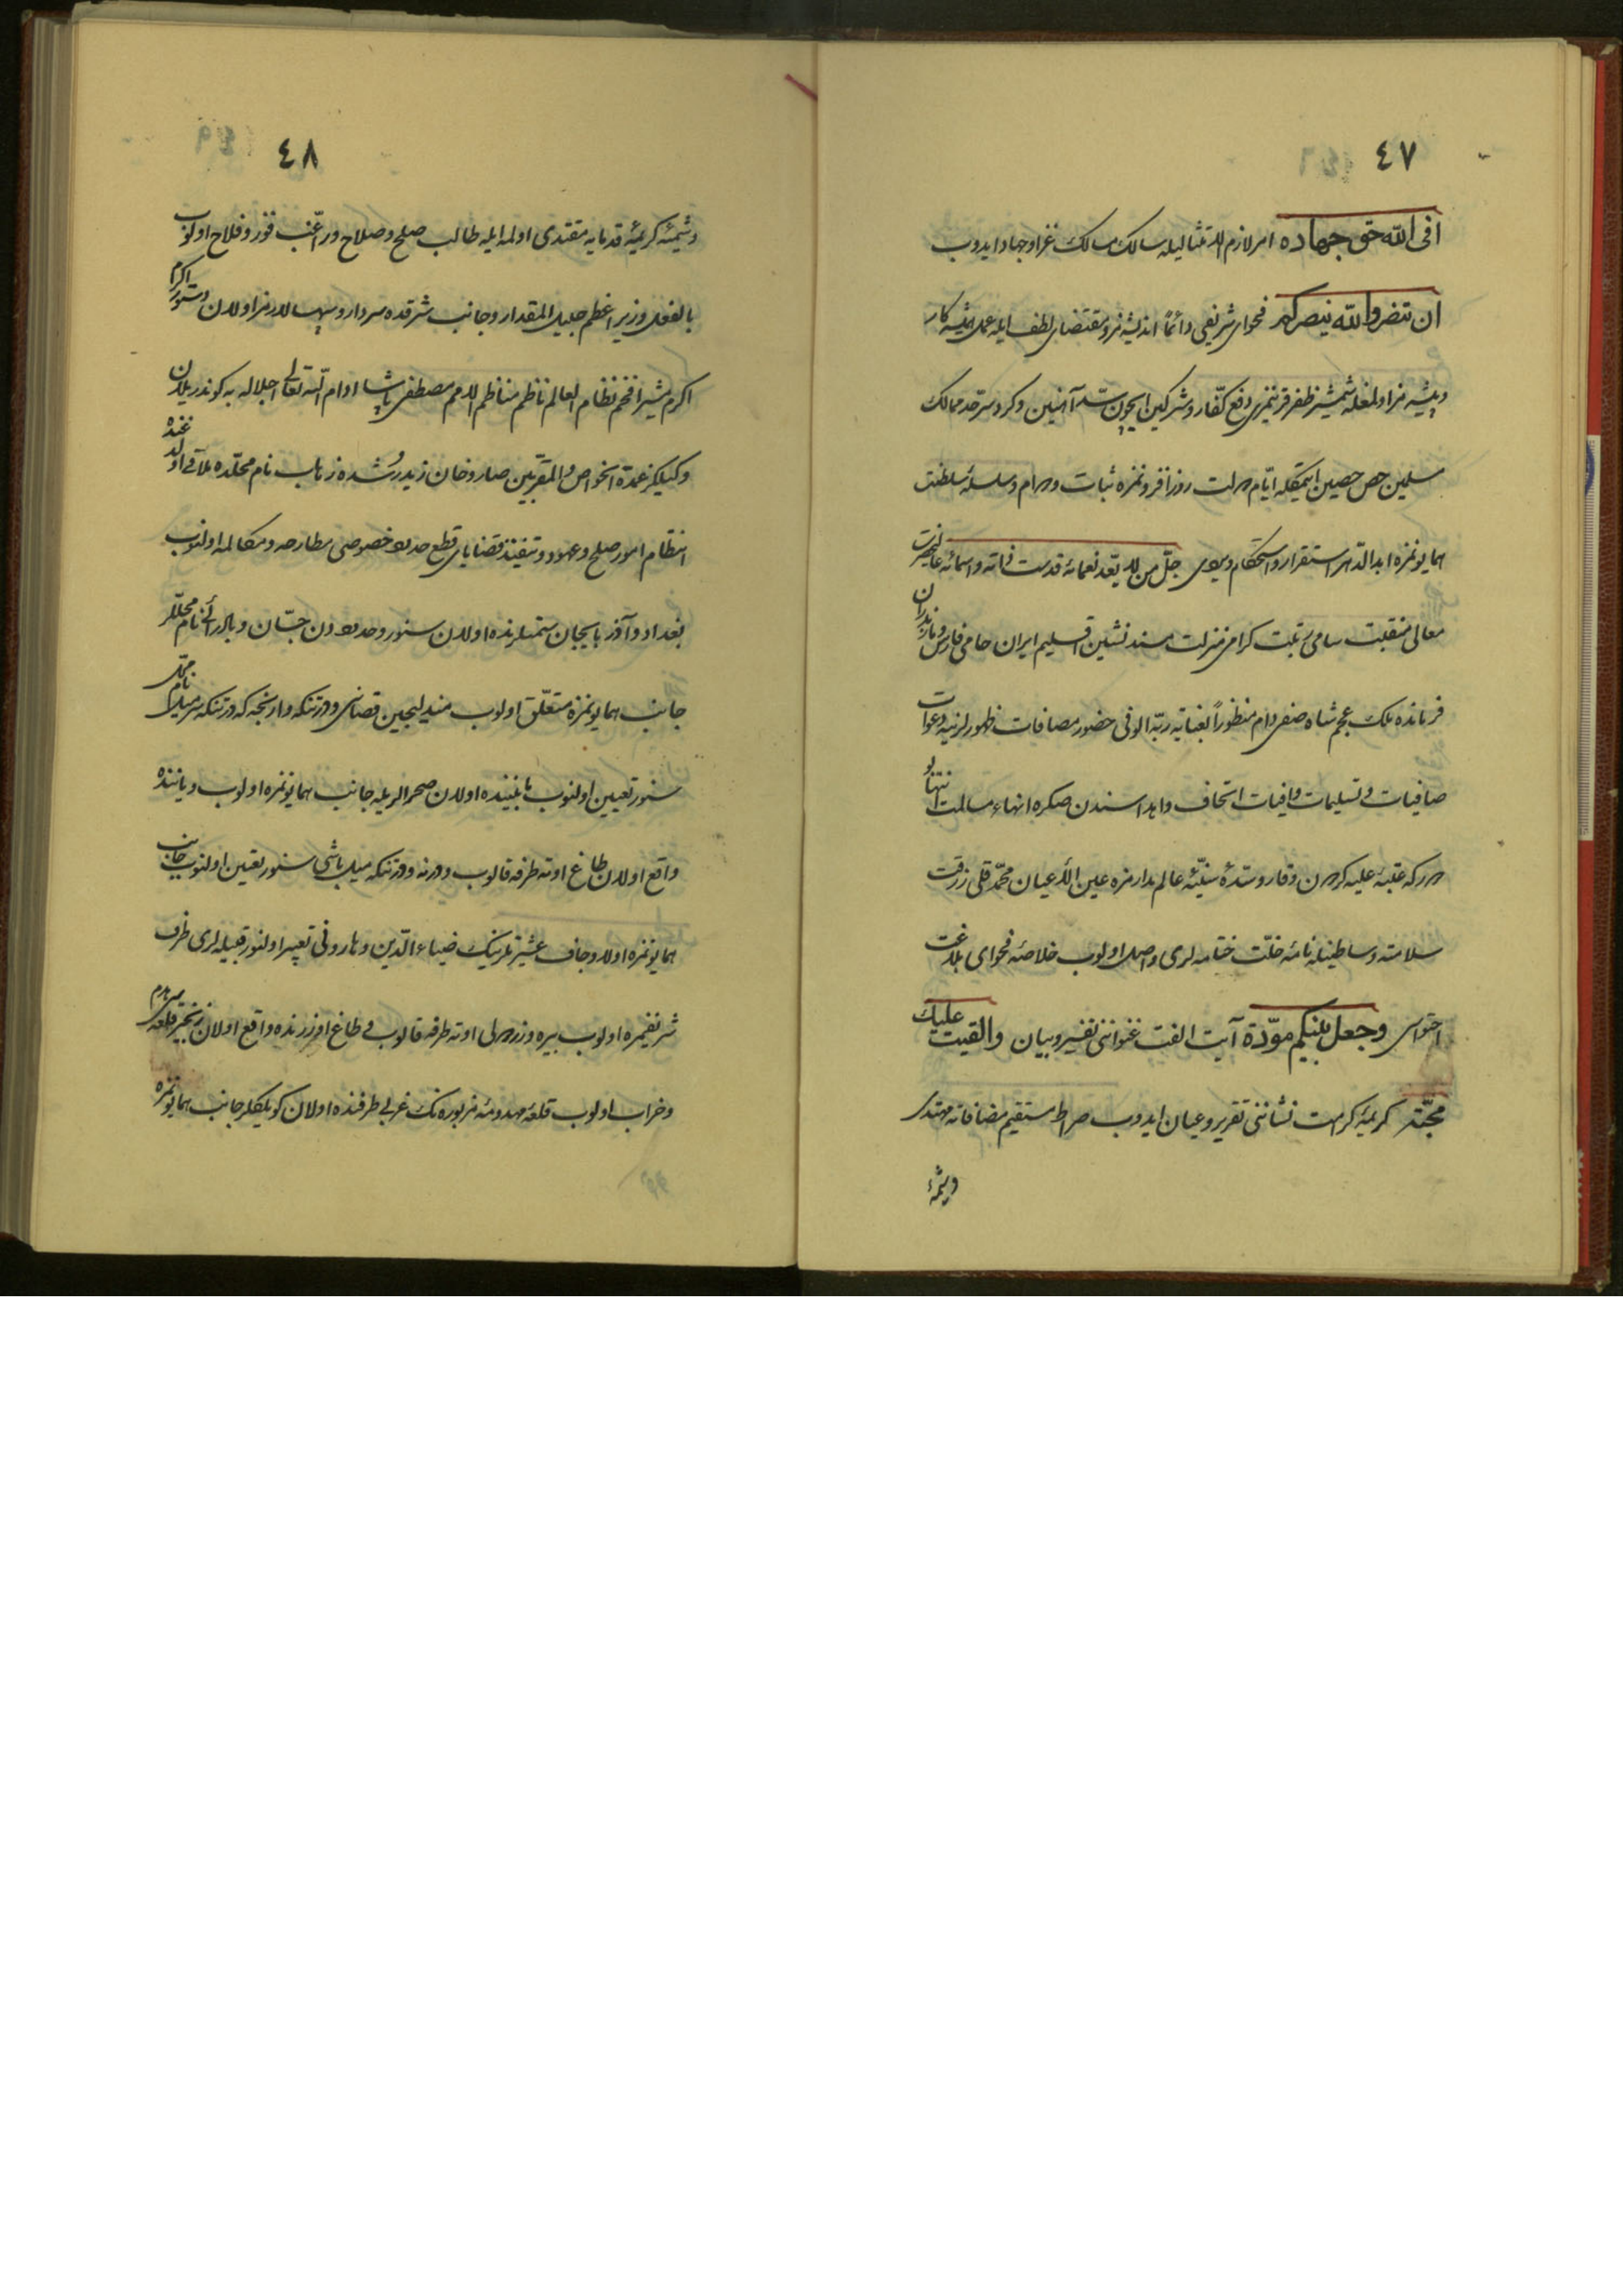 ٤٧
فی الله حق جهاده امر لازم الامتثالیله سالك مسالك غزا و جهاد ایدوب
ان تنصروا الله ینصركم فحوای شریفی دائماً اندیشه مز و مقتضای لطف ایله عمل همیشه كار
و پیشه مز اولمغله شمشیر ظفر قرینمزی دفع كفّار و مشركین ایچون سدّ آهنین و كرد سرحد ممالك
مسلمین حصن حصین ایتمكله ایّام دولت روز افزونمزه ثبات و دوام و سلسلۀ سلطنت
همایونمزه ابد الدهر استقرار و استحكام ویردی جلّ من لا یعد نعمائه قدست ذاته و اسمائه عالیحضرت
معالی منقبت سامی رتبت كرامی منزلت مسند نشین اقلیم ایران حامی فارس و مازندران
فرمانده ملك عجم شاه صفی دام منظوراً بعنایة ربّه الوفی حضور مصافات ظهورلرینه دعوات
صافیات و تسلیمات وافیات اتحاف و اهدا سندن صكره انهاء مسالمت انتها بو
در كه عتبۀ علیۀ كردون وقار و سدّۀ سنیّۀ عالم مدارمزه عین الاعیان محمّد قلی زرقت
سلامته وساطتیله نامۀ خلّت ختامه لری واصل اولوب خلاصۀ فحوای بلاغت
احتواسی وجعل بینكم مودّة آیت الفت غنواننی تفسیر و بیان والقیت علیك
محبّة كریمۀ كرامت نشاننی تقریر و عیان ایدوب صراط مستقیم مضافاته مهتدی
وشیمۀ
٤٨
وشیمۀ كریمۀ قدمایه مقتدی اولمه ایله طالب صلح و صلاح و راغب فوز و فلاح اولوب
بالفعل وزیر اعظم جلیل المقدار و جانب شرقده سردار و سپهسالارمز اولان دستور اكرم
اكرم مشیر افخم نظام العالم ناظم مناظم الامم مصطفی پاشا ادام الله تعالی اجلاله یه كوندریلان
وكیلكز عمدة الخواص و المقرّبین صاروخان زید رشده زهاب نام محلّده ملاقی اولدغنده
انتظام امور صلح و عهود و تنفیذ قضایای قطع حدود خصوصی مطارحه و مكالمه اولنوب
بغداد و آذربایجان سمتلرنده اولان سنور و حدوددن جسّان و بادرائی نام محلّلر
جانب همایونمزه متعلّق اولوب مندلیجین قصبه سی و درتنكه وارنجه كه درتنكه سرمیل نام محلّ
سنور تعیین اولنوب مابیننده اولان صحرالریله جانب همایونمزه اولوب و یاننده
واقع اولان طاغ اوته طرفه قالوب و درنه و درتنكه میل باشی سنور تعیین اولنوب جانب
همایونمزه اولا و جاف عشیرتلرینك ضیاء الدین و هارونی تعبیر اولنور قبیله لری طرف
شریفمزه اولوب بیره و زردوی اوته طرفه قالوب و طاغ اوزرنده واقع اولان زنجیر قلعه سی هدم
و خراب اولوب قلعۀ مهدومۀ مزبوره نك غربی طرفنده اولان كویلكلر جانب همایونمزه